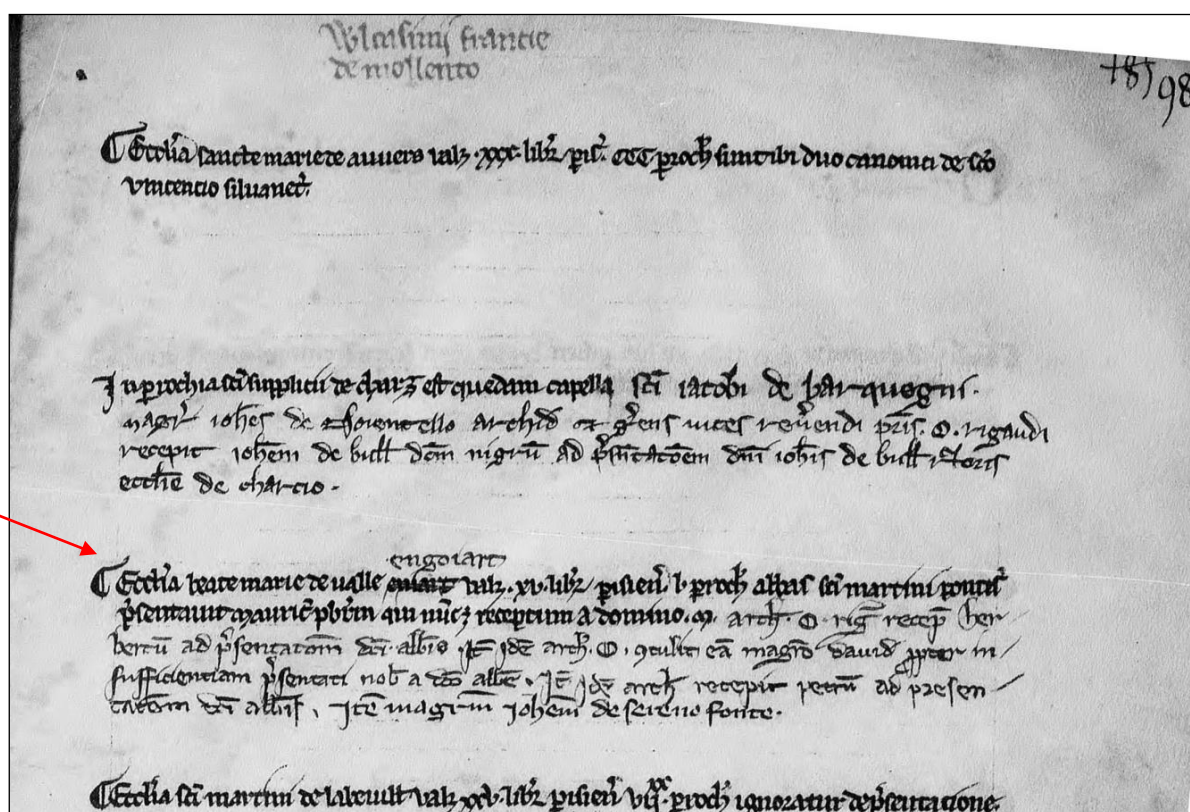 Wlcasini francie
de mellento
+87 98
Ecclĩa sancte marie de auuers ualʒ .xxx. libr̃ pis̃. CCC proch̃ sunt ibi duo canonici de sc̃o
vincencio siluanec̃.
In prochia sc̃i supplicii de charz est quedam capella sc̃i iacobi de barquegni.
magr̃ ioh̃es de archid̃ gerens uices reuẽrendi pr̃is. O. rigaudi
recepit ioh̃em de bull̃ dc̃m nigrũ ad p̃sñtatõem dñi ioh̃is de bull̃ r̃toris
eccl̃ie de charcio.
engoiart
Eccl̃ia beate marie de ualle ualʒ .xv. libr̃ pisień. l. proch̃ abbas sc̃i martini pontis̃
p̃sentauit mauric̃ pbr̃m qui nũc ; receptum a domino .M. arch̃. O. rig̃ recep̃ her
bertũ ad p̃sentatom̃ dc̃i abb̃is Itẽ idẽ arch̃. O. 9tulit eã magr̃o dauid ppter in
sufficientiam p̃sentati nob̃ a dc̃o abb̃e. Itẽ idẽ arch̃ recepit petrũ ad presen
tatõem dc̃i abb̃is. Itẽ magr̃m ioh̃em de sereno fonte.
Eccl̃ia sc̃i martini de labeuill̃ ualʒ xxv. libr̃ pisień proch̃ ignoratur de p̃sentatione.